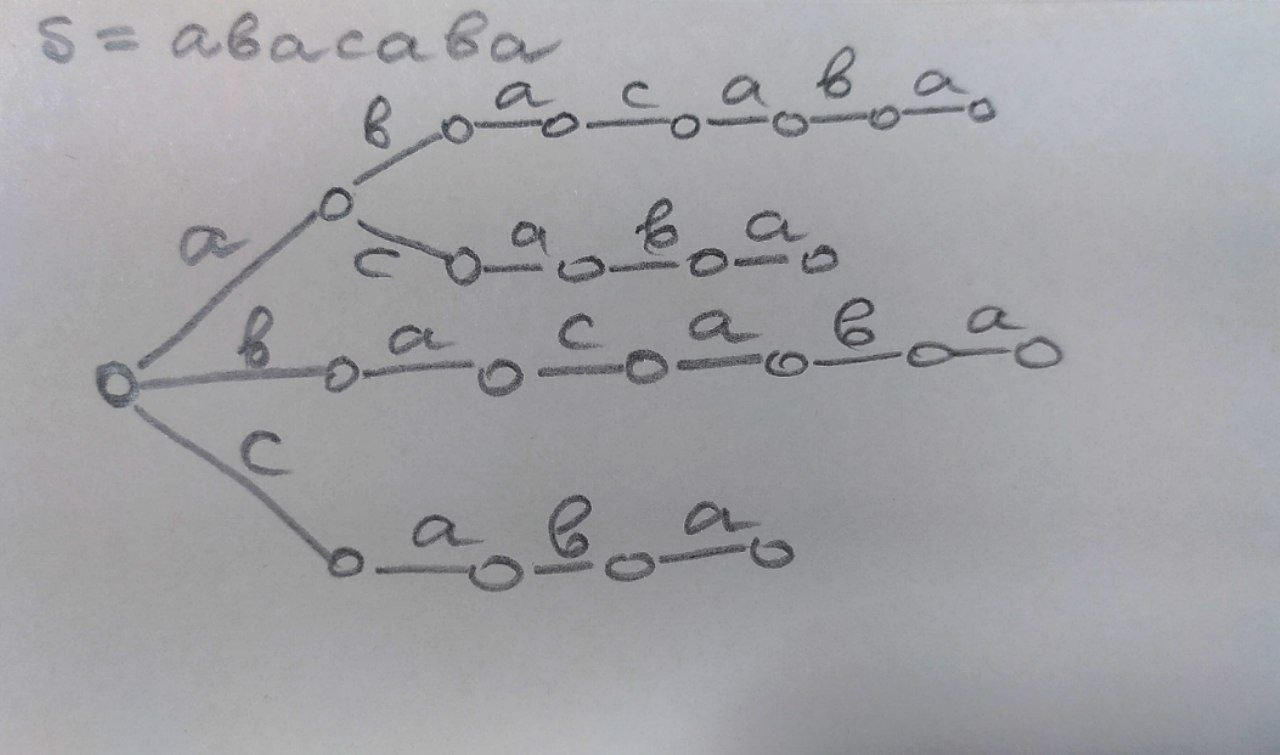 S = abacaba
b a c a b a
a
c a b a
b a c a b a
c a b a